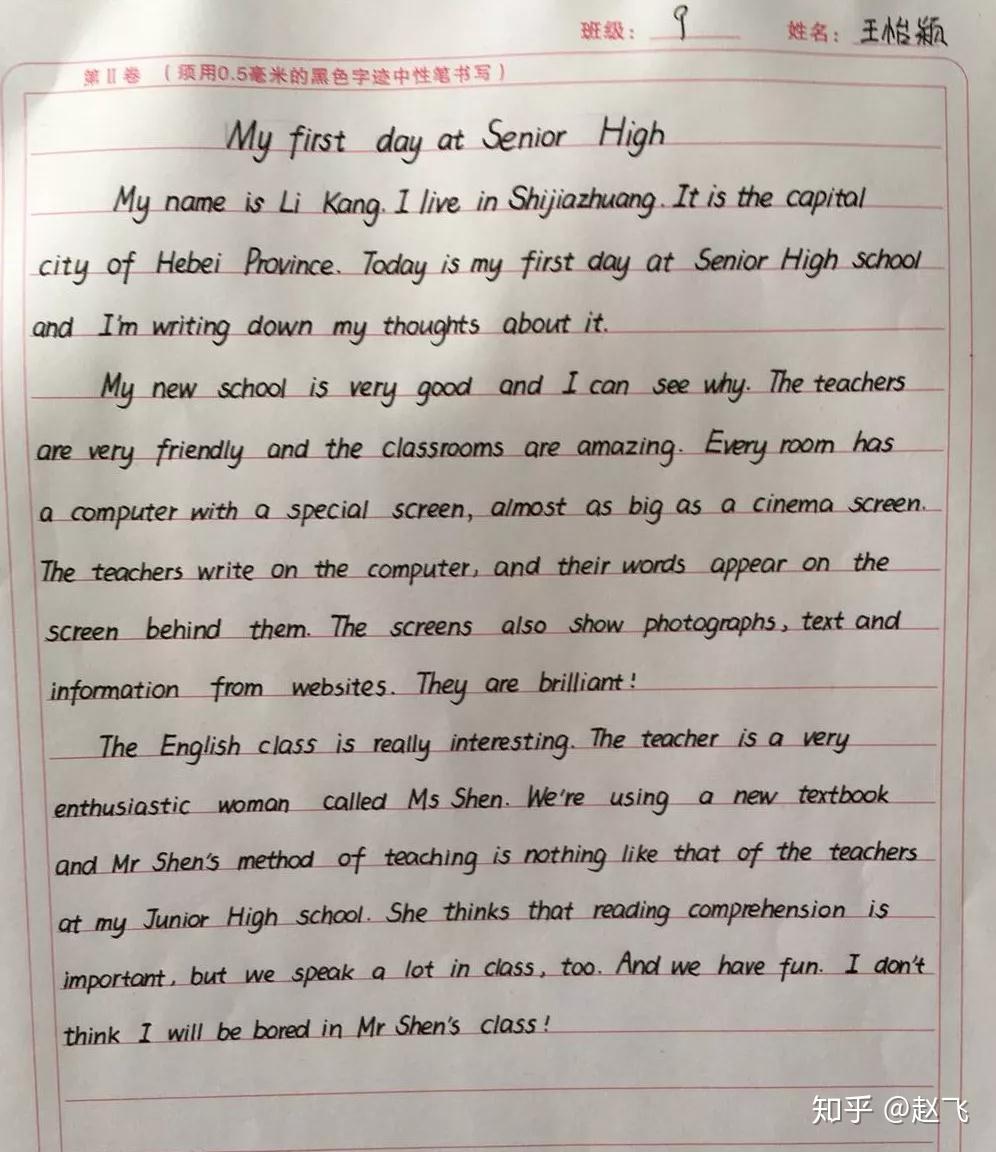 班级： 9 姓名：王怡颖
第Ⅱ卷 （须用0.5毫米的黑色字迹中性笔书写）
My first day at Senior High
My name is Li Kang. I live in Shijiazhuang. It is the capital
city of Hebei Province. Today is my first day at Senior High school
and I'm writing down my thoughts about it.
My new school is very good and I can see why. The teachers
are very friendly and the classrooms are amazing. Every room has
a computer with a special screen, almost as big as a cinema screen.
The teachers write on the computer, and their words appear on the
screen behind them. The screens also show photographs, text and
information from websites. They are brilliant!
The English class is really interesting. The teacher is a very
enthusiastic woman called Ms Shen. We're using a new textbook
and Mr Shen's method of teaching is nothing like that of the teachers
at my Junior High school. She thinks that reading comprehension is
important, but we speak a lot in class, too. And we have fun. I don't
think I will be bored in Mr Shen's class!
知乎 @赵飞